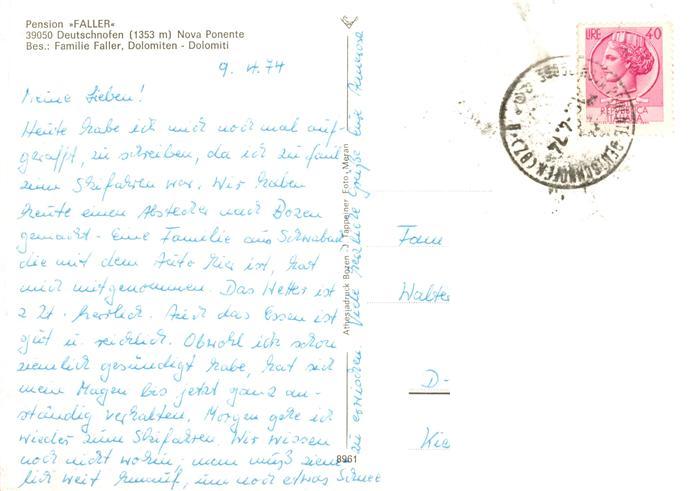 Pension »FALLER«
39050 Deutschnofen (1353 m) Nova Ponente
Bes.: Familie Faller, Dolomiten - Dolomiti
9. 4. 74
Meine Lieben!
Heute habe ich mich noch mal auf-
gerafft, zu schreiben, da ich zu faul
zum Skifahren war. Wir haben
heute einen Abstecher nach Bozen
gemacht - Eine Familie aus Schwabach
die mit dem Auto hier ist, hat
mich mitgenommen. Das Wetter ist
z Zt. herrlich. Auch das Essen ist
gut u. reichlich. Obwohl ich schon
ziemlich gesündigt habe, hat sich
mein Magen bis jetzt ganz an-
ständig verhalten. Morgen gehe ich
wieder zum Skifahren. Wir wissen
noch nicht wohin; man muß ziem-
lich weit hinauf, um noch etwas Schnee
zu erwischen. Viele herzliche Grüße Eure
Athesiadruck Bozen Tappeiner Foto Meran
8961
LIRE 40
REPUBBLICA
DEUTSCHNOFEN (BZ)
4.74
Fam
Walter
D-
Kie